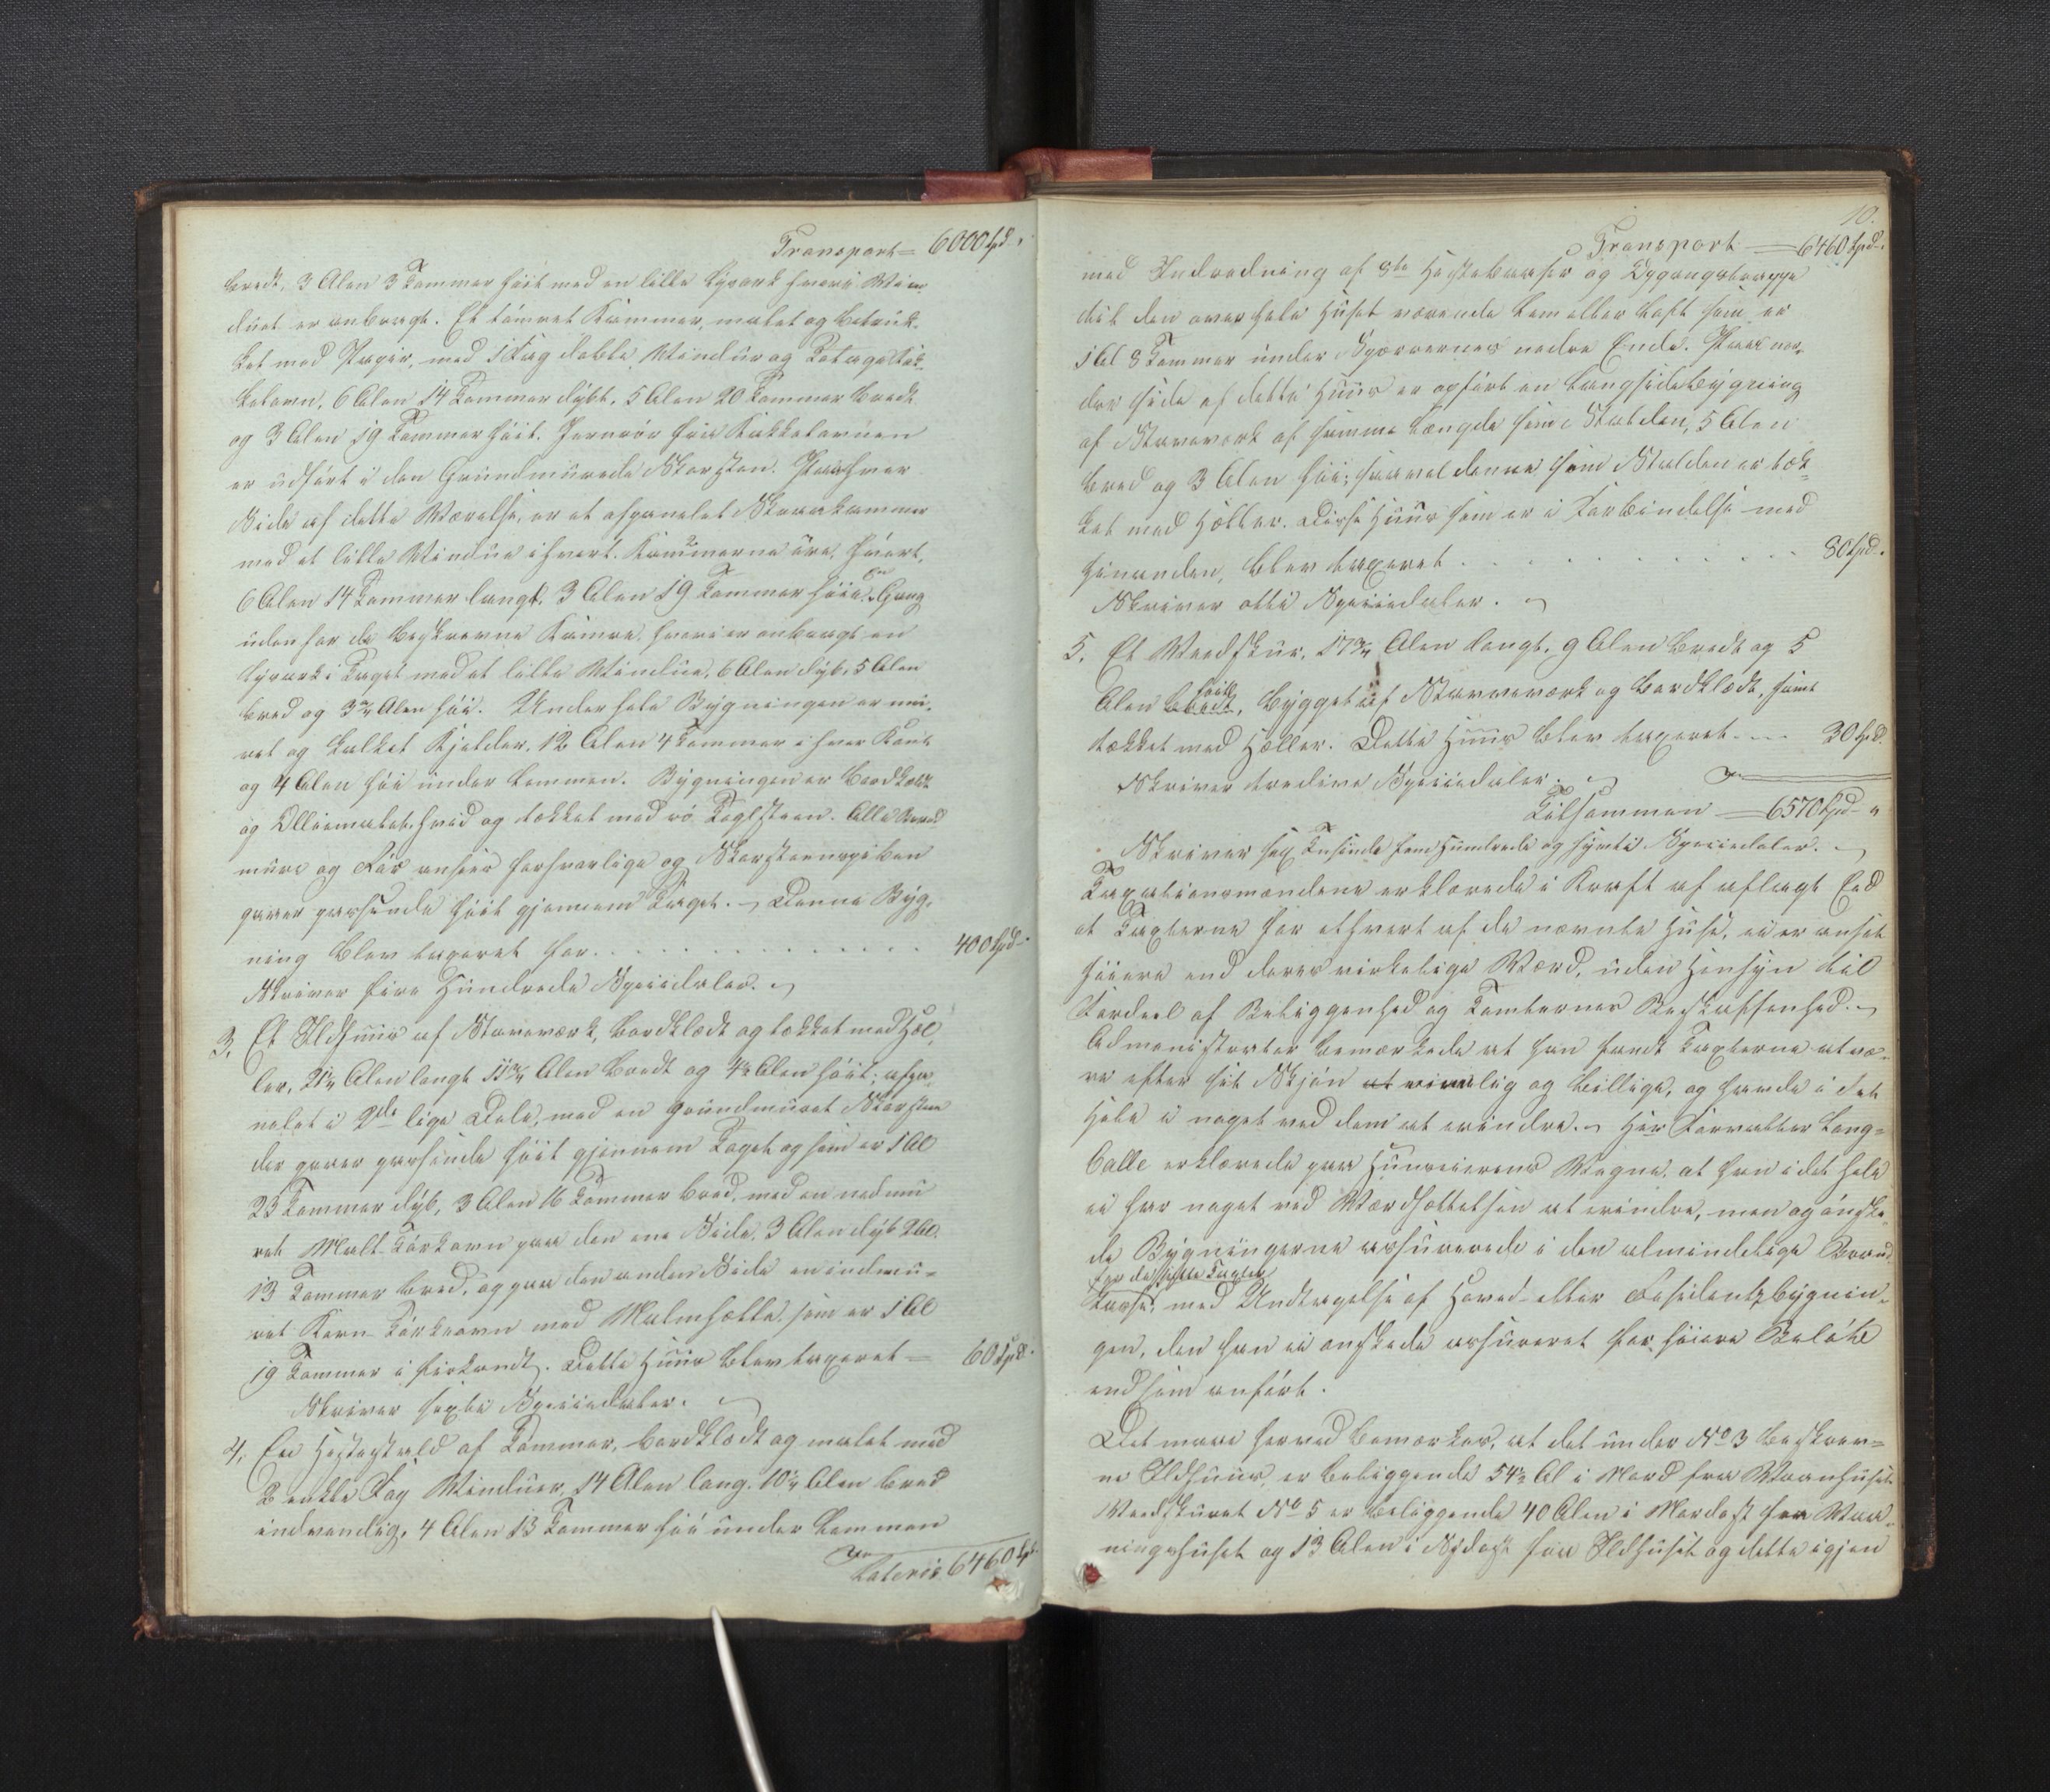 Transport = 6000 Spd.
bredt, 3 Alen 3 Tommer høit med en lille Qvark hvori Vin-
duet er anbragt. Et tømret Kammer, malet og betræk-
ket med Papir, med 1 Fag dobble Vinduer og Etage Kak-
kelovn, 6 Alen 14 Tommer dybt, 5 Alen 20 Tommer bredt
og 3 Alen 19 Tommer høit. Jernrør fra Kakkelovnen
er udført i den Grundmurede Skorsten. Paa hver
Side af dette Værelse, er et afpanelet Skraakammer
med et lille Vindue i hvert. Kammerne ere, hvert,
6 Alen 14 Tommer langt, 3 Alen 19 Tommer høie. En Gang
udenfor de beskrevne Kamre, hvori er anbragt en
Qvark i Taget med et lille Vindue, 6 Alen dyb, 5 Alen
bred og 3 3/4 Alen høi. Under hele Bygningen er mu-
ret og kalket Kjelder, 12 Alen 4 Tommer i hver Kant
og 4 Alen høi under Lemmen. Bygningen er bordklædt
og Olliemalet hvid og tækket med rø Taglsteen. Alle Brand
mure og Rør ansees forsvarlige og Skorsteenspiben
gaaer passende høit gjennem Taget. Denne Byg-
ning blev taxeret for . . . . . . 400 Spd.
Skriver fire Hundrede Speciedaler.
3, Et Ildhuus af Staveværk, bordklædt og tækket med Hel-
ler, 21 1/2 Alen langt 11 3/4 Alen bredt og 4 1/2 Alen høit; afpa-
nelet i 2de lige Dele, med en grundmuret Skorsteen
der gaaer passende høit gjennem Taget og som er 1 Al
23 Tommer dyb, 3 Alen 16 Tommer bred, med en indmu
ret Malt-Tørkeovn paa den ene Side, 3 Alen dyb 2 Al.
13 Tommer bred, og paa den anden Side en indmu-
ret Korn Tørkeovn med Malmhelle, som er 1 Al
19 Tommer i firkandt. Dette Huus blev taxeret = 60 Spd.
Skriver sexti Speciedaler.
4, En Hestestald af Tømmer, bordklædt og malet med
2 enkle Fag Vinduer, 14 Alen lang, 10 1/4 Alen bred
indvendig, 4 Alen 13 Tommer høi under Lemmen
Lateris 6460 Spd.
10.
Transport = 6460 Spd.
med Indredning af 8te Hestebaaser og Opgangstrappe
til den over hele Huset værende Lem eller Loft som er
1 Al 8 Tommer under Sperrernes nedre Ende. Paa nor-
dre Side af dette Huus er opført en Langsidebygning
af Staveverk af samme Længde som Stalden, 5 Alen
bred og 3 Alen høi; saavel denne som Stalden er tæk-
ket med Heller. Disse Huus som er i Forbindelse med
hinanden, blev taxeret . . . . . . 80 Spd.
Skriver otti Speciedaler.
5, Et Vedskur, 17 3/4 Alen langt, 9 Alen bredt og 5
Alen bredt høit, bygget af Staveværk og bordklædt, samt
tækket med Heller. Dette Huus blev taxeret .... 30 Spd.
Skriver tredive Speciedaler.
Tilsammen = 6570 Spd "
Skriver sex Tusinde fem Hundrede og sytti Speciedaler.
Taxationsmændene erklærede i Kraft af aflagt Eed
at Taxterne for ethvert af de nævnte Huse, ei er ansat
høiere end deres virkelige Værd, uden Hensyn til
Fordeel af Beliggenhed og Tomternes Beskaffenhed.
Admenistrator bemærkede at han fandt Taxterne at væ-
re efter sit Skjøn at rimelig og billige, og havde i det
Hele ei noget ved dem at erindre. Her Forvalter Lang-
balle erklærede paa Huuseierens Vegne, at han i det hele
ei har noget ved Værdsættelsen at erindre, men og ønske-
de Bygningerne assurerede i den almindelige Brand-
for de satte Taxter
Kasse, med Undtagelse af Hoved- eller Residentzbygnin-
gen, den han ei ønskede assureret for høiere Beløb
end som anført.
Det maae herved bemærkes, at det under No 3 beskrev-
ne Ildhuus, er beliggende 54 1/2 Al i Nord fra Vaanhuset
Vedskuret No 5 er beliggende 40 Alen i Nordost fra Vaa-
ningshuset og 13 Alen i Sydost fra Ildhuset og dette igjen